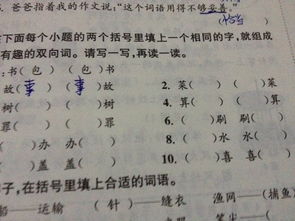 爸爸指着我的作文说:“这个词语用得不够妥善。”(
下面每个小题的两个括号里填上一个相同的字,就组成
有趣的双向词。请写一写,再读一读。
:书( 包 ) ( 包 )书
故( 事 ) ( 事 )故 2. 菜( ) ( )
树( ) ( )树 4. 算( ) ( )
罪( ) ( )罪 6. ( )刷 刷( )
( )办 办( ) 8. ( )水 水( )
( )盖 盖( ) 10. ( )喜 喜( )
子,在括号里填上合适的词语。
船——运输 ( 针 )——缝衣 渔网——(捕鱼)
笔尖